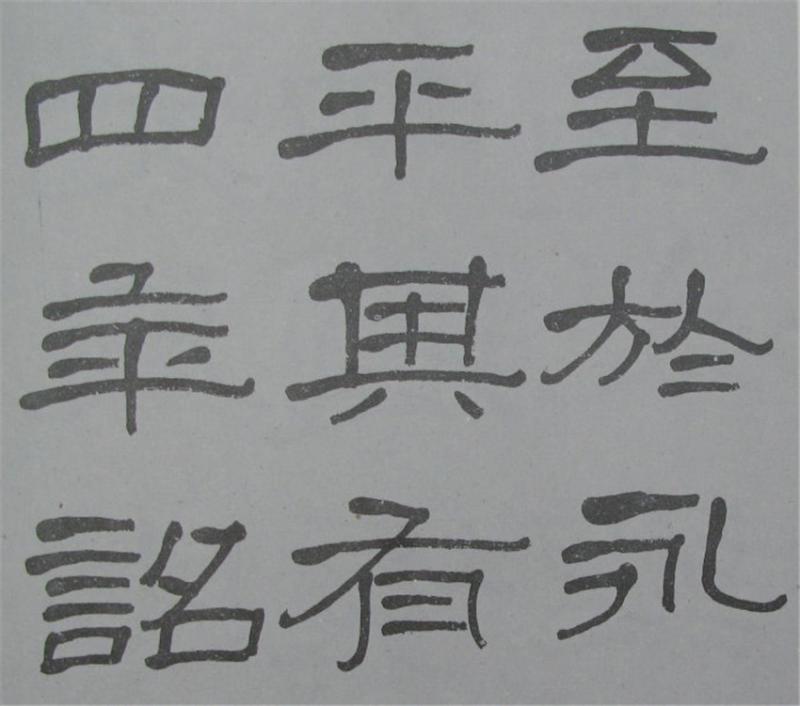 至於永
平其有
四年詔